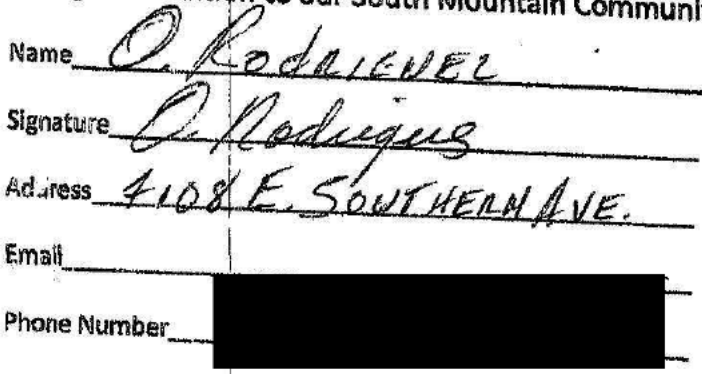 to our South Mountain Communi
Name O. Rodriguez
Signature O. Rodriguez
Address 4108 E. SOUTHERN AVE.
Email
Phone Number